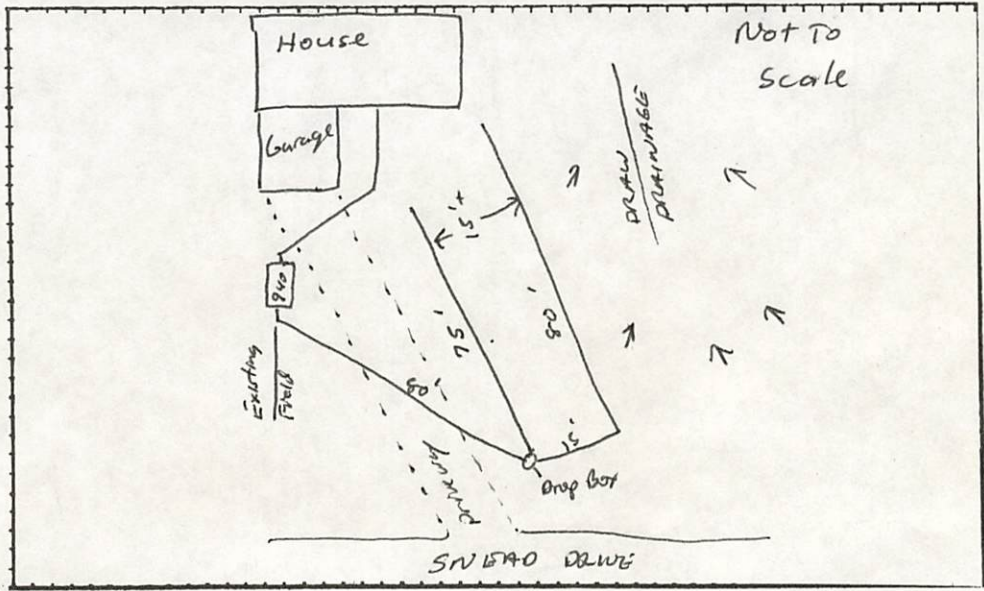 House
Not To
Scale
Garage
DRAW
DRAINAGE
15'+
940
75'
80'
Existing
Field
80'
15'
Driveway
Drop Box
SNEAD DRIVE